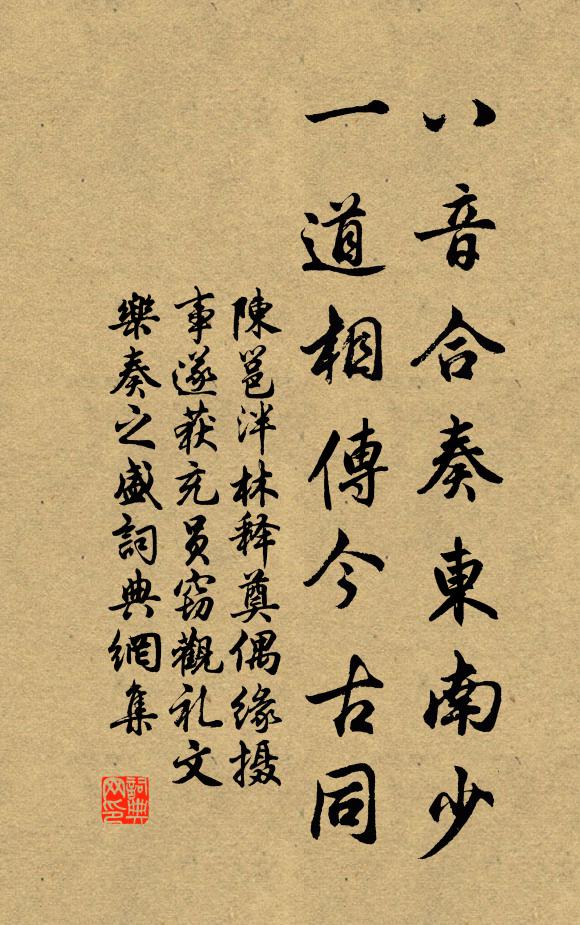 八音合奏東南少
一道相傳今古同
陳邕泮林释奠偶缘摄
事遂获充員窃觀礼文
樂奏之盛詞典網集
詞典
网印